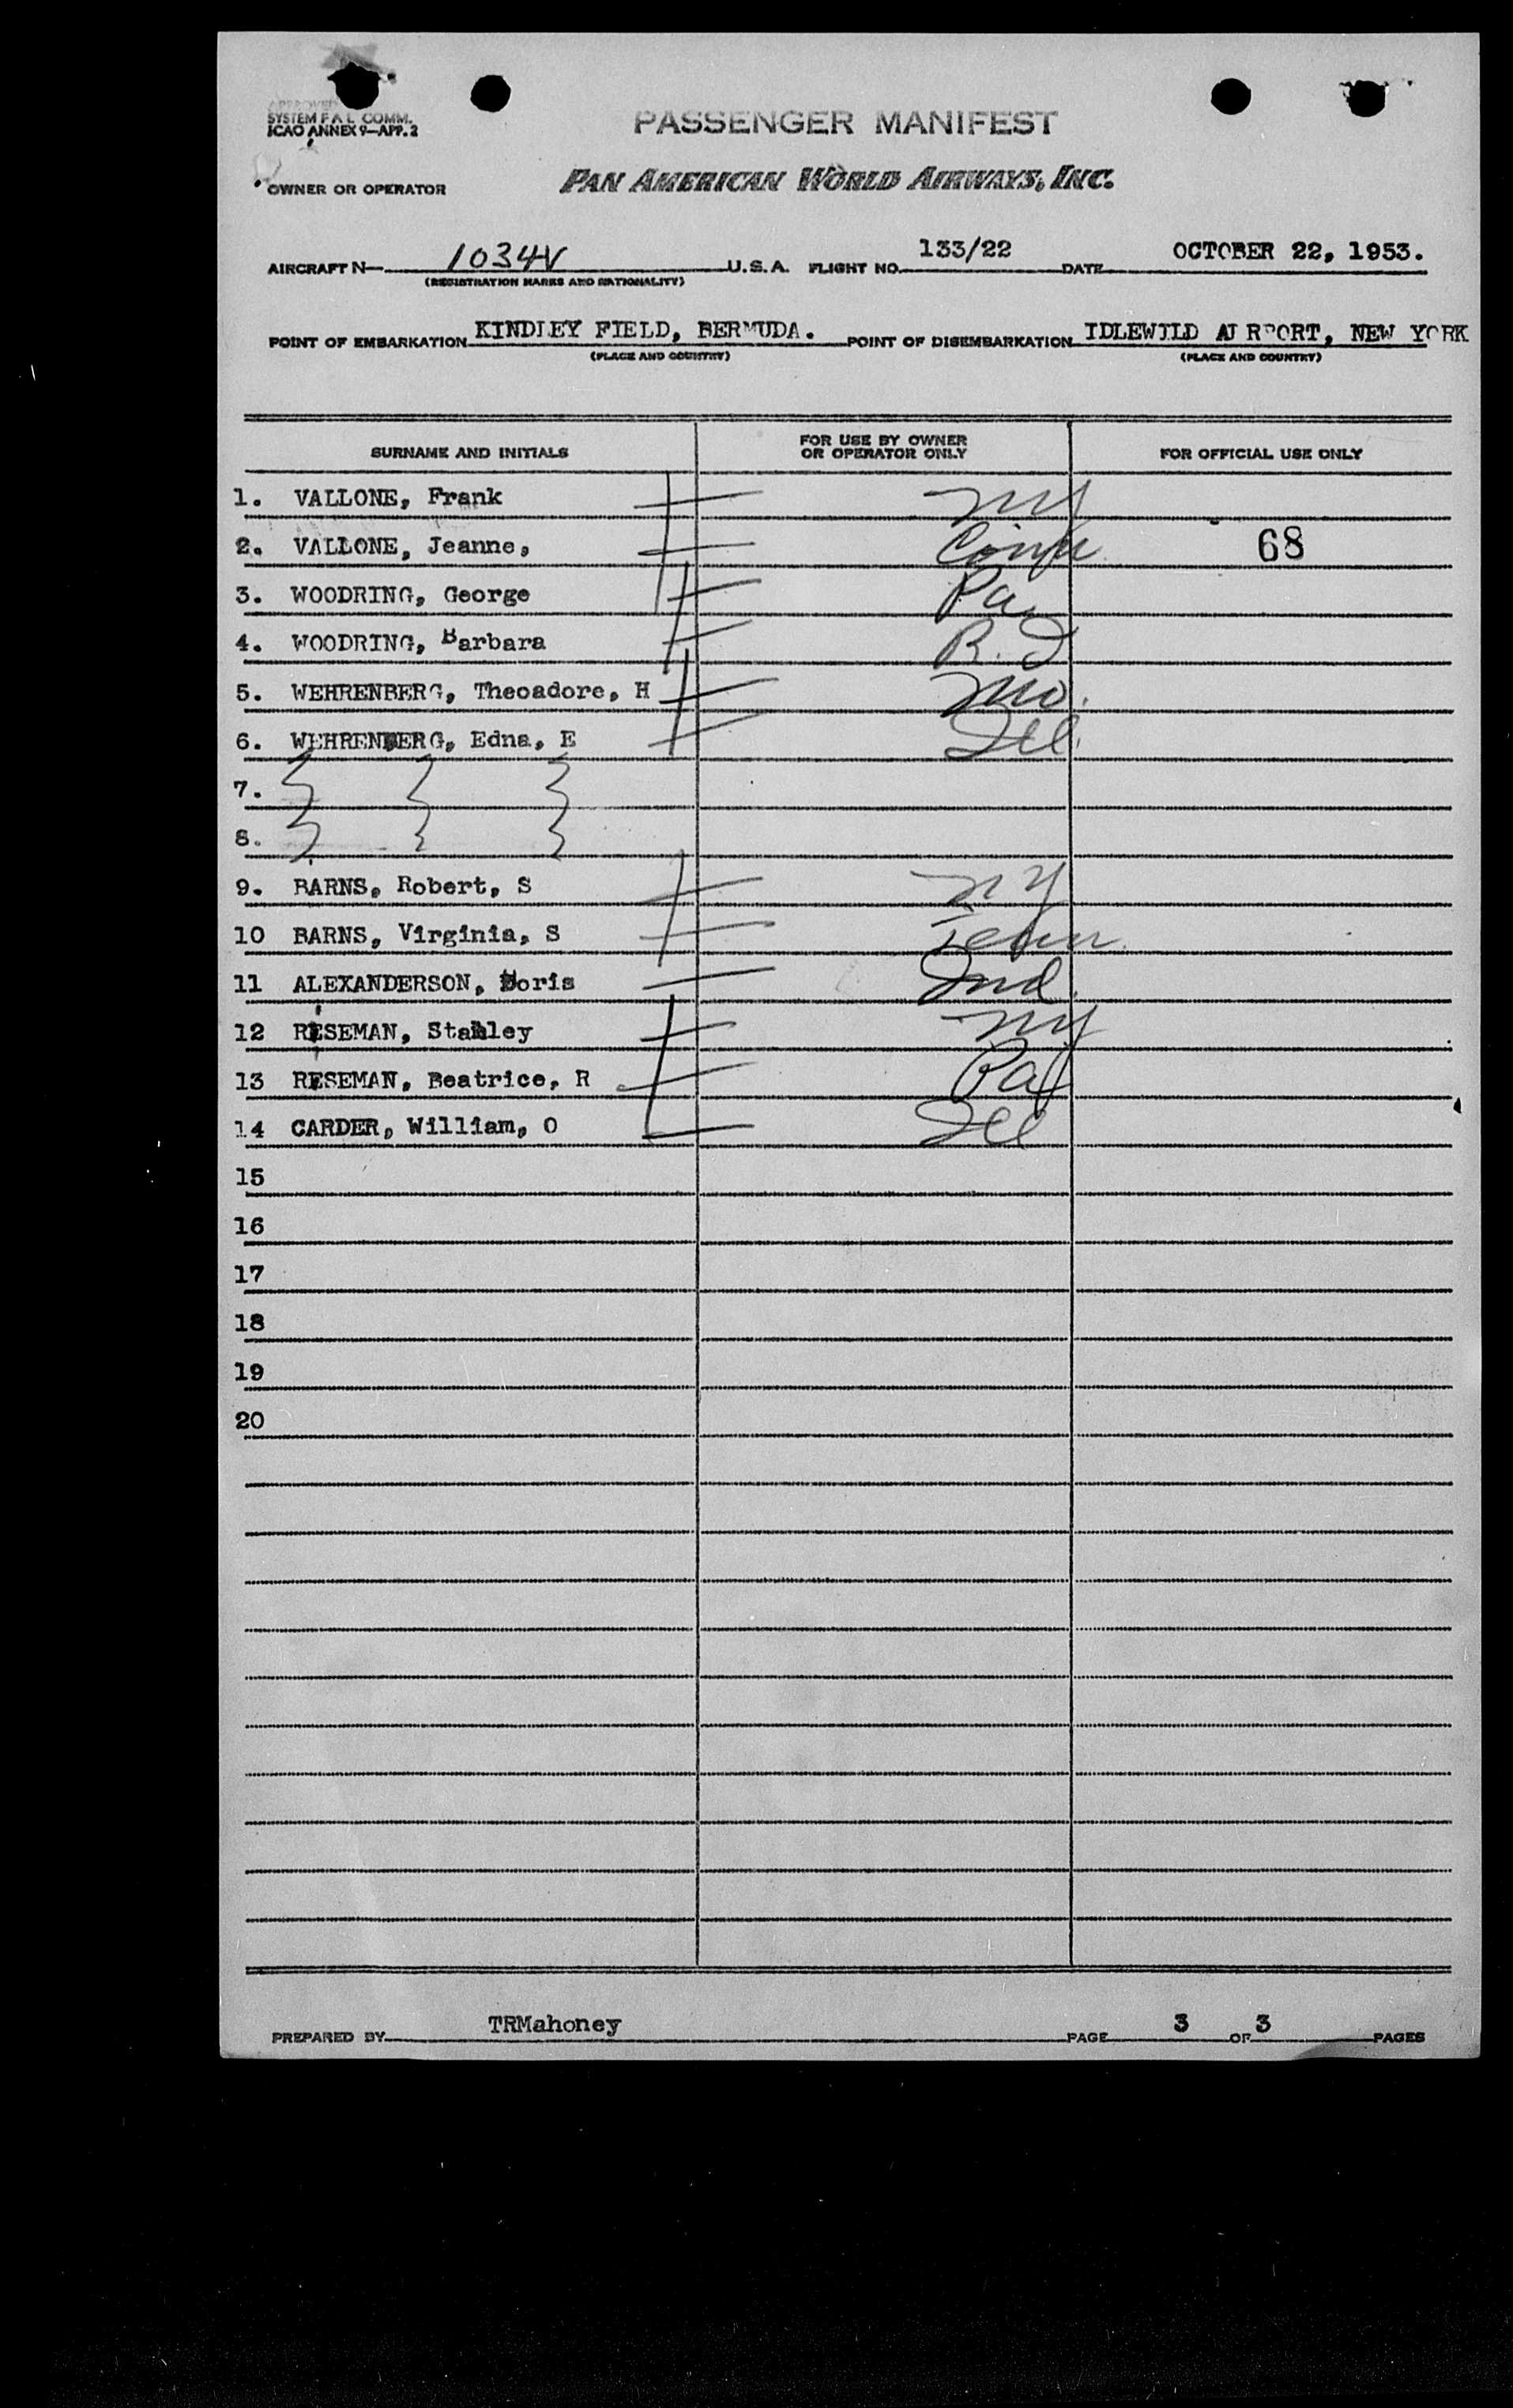 APPROVED
SYSTEM F A L COMM.
ICAO ANNEX 9—APP. 2
PASSENGER MANIFEST
OWNER OR OPERATOR PAN AMERICAN WORLD AIRWAYS, INC.
AIRCRAFT N— 1034V U.S.A. FLIGHT NO. 133/22 DATE OCTOBER 22, 1953.
(REGISTRATION MARKS AND NATIONALITY)
POINT OF EMBARKATION KINDLEY FIELD, BERMUDA. POINT OF DISEMBARKATION IDLEWILD AIRPORT, NEW YORK
(PLACE AND COUNTRY) (PLACE AND COUNTRY)
SURNAME AND INITIALS FOR USE BY OWNER OR OPERATOR ONLY FOR OFFICIAL USE ONLY
1. VALLONE, Frank NY
2. VALLONE, Jeanne, Conn 68
3. WOODRING, George Pa
4. WOODRING, Barbara R.I
5. WEHRENBERG, Theoadore, H Mo.
6. WEHRENBERG, Edna, E Ill.
7.
8.
9. BARNS, Robert, S NY
10 BARNS, Virginia, S Tenn.
11 ALEXANDERSON, Doris Ind.
12 RISEMAN, Stanley NY
13 RISEMAN, Beatrice, R Pa
14 CARDER, William, O Ill
15
16
17
18
19
20
PREPARED BY TRMahoney PAGE 3 OF 3 PAGES